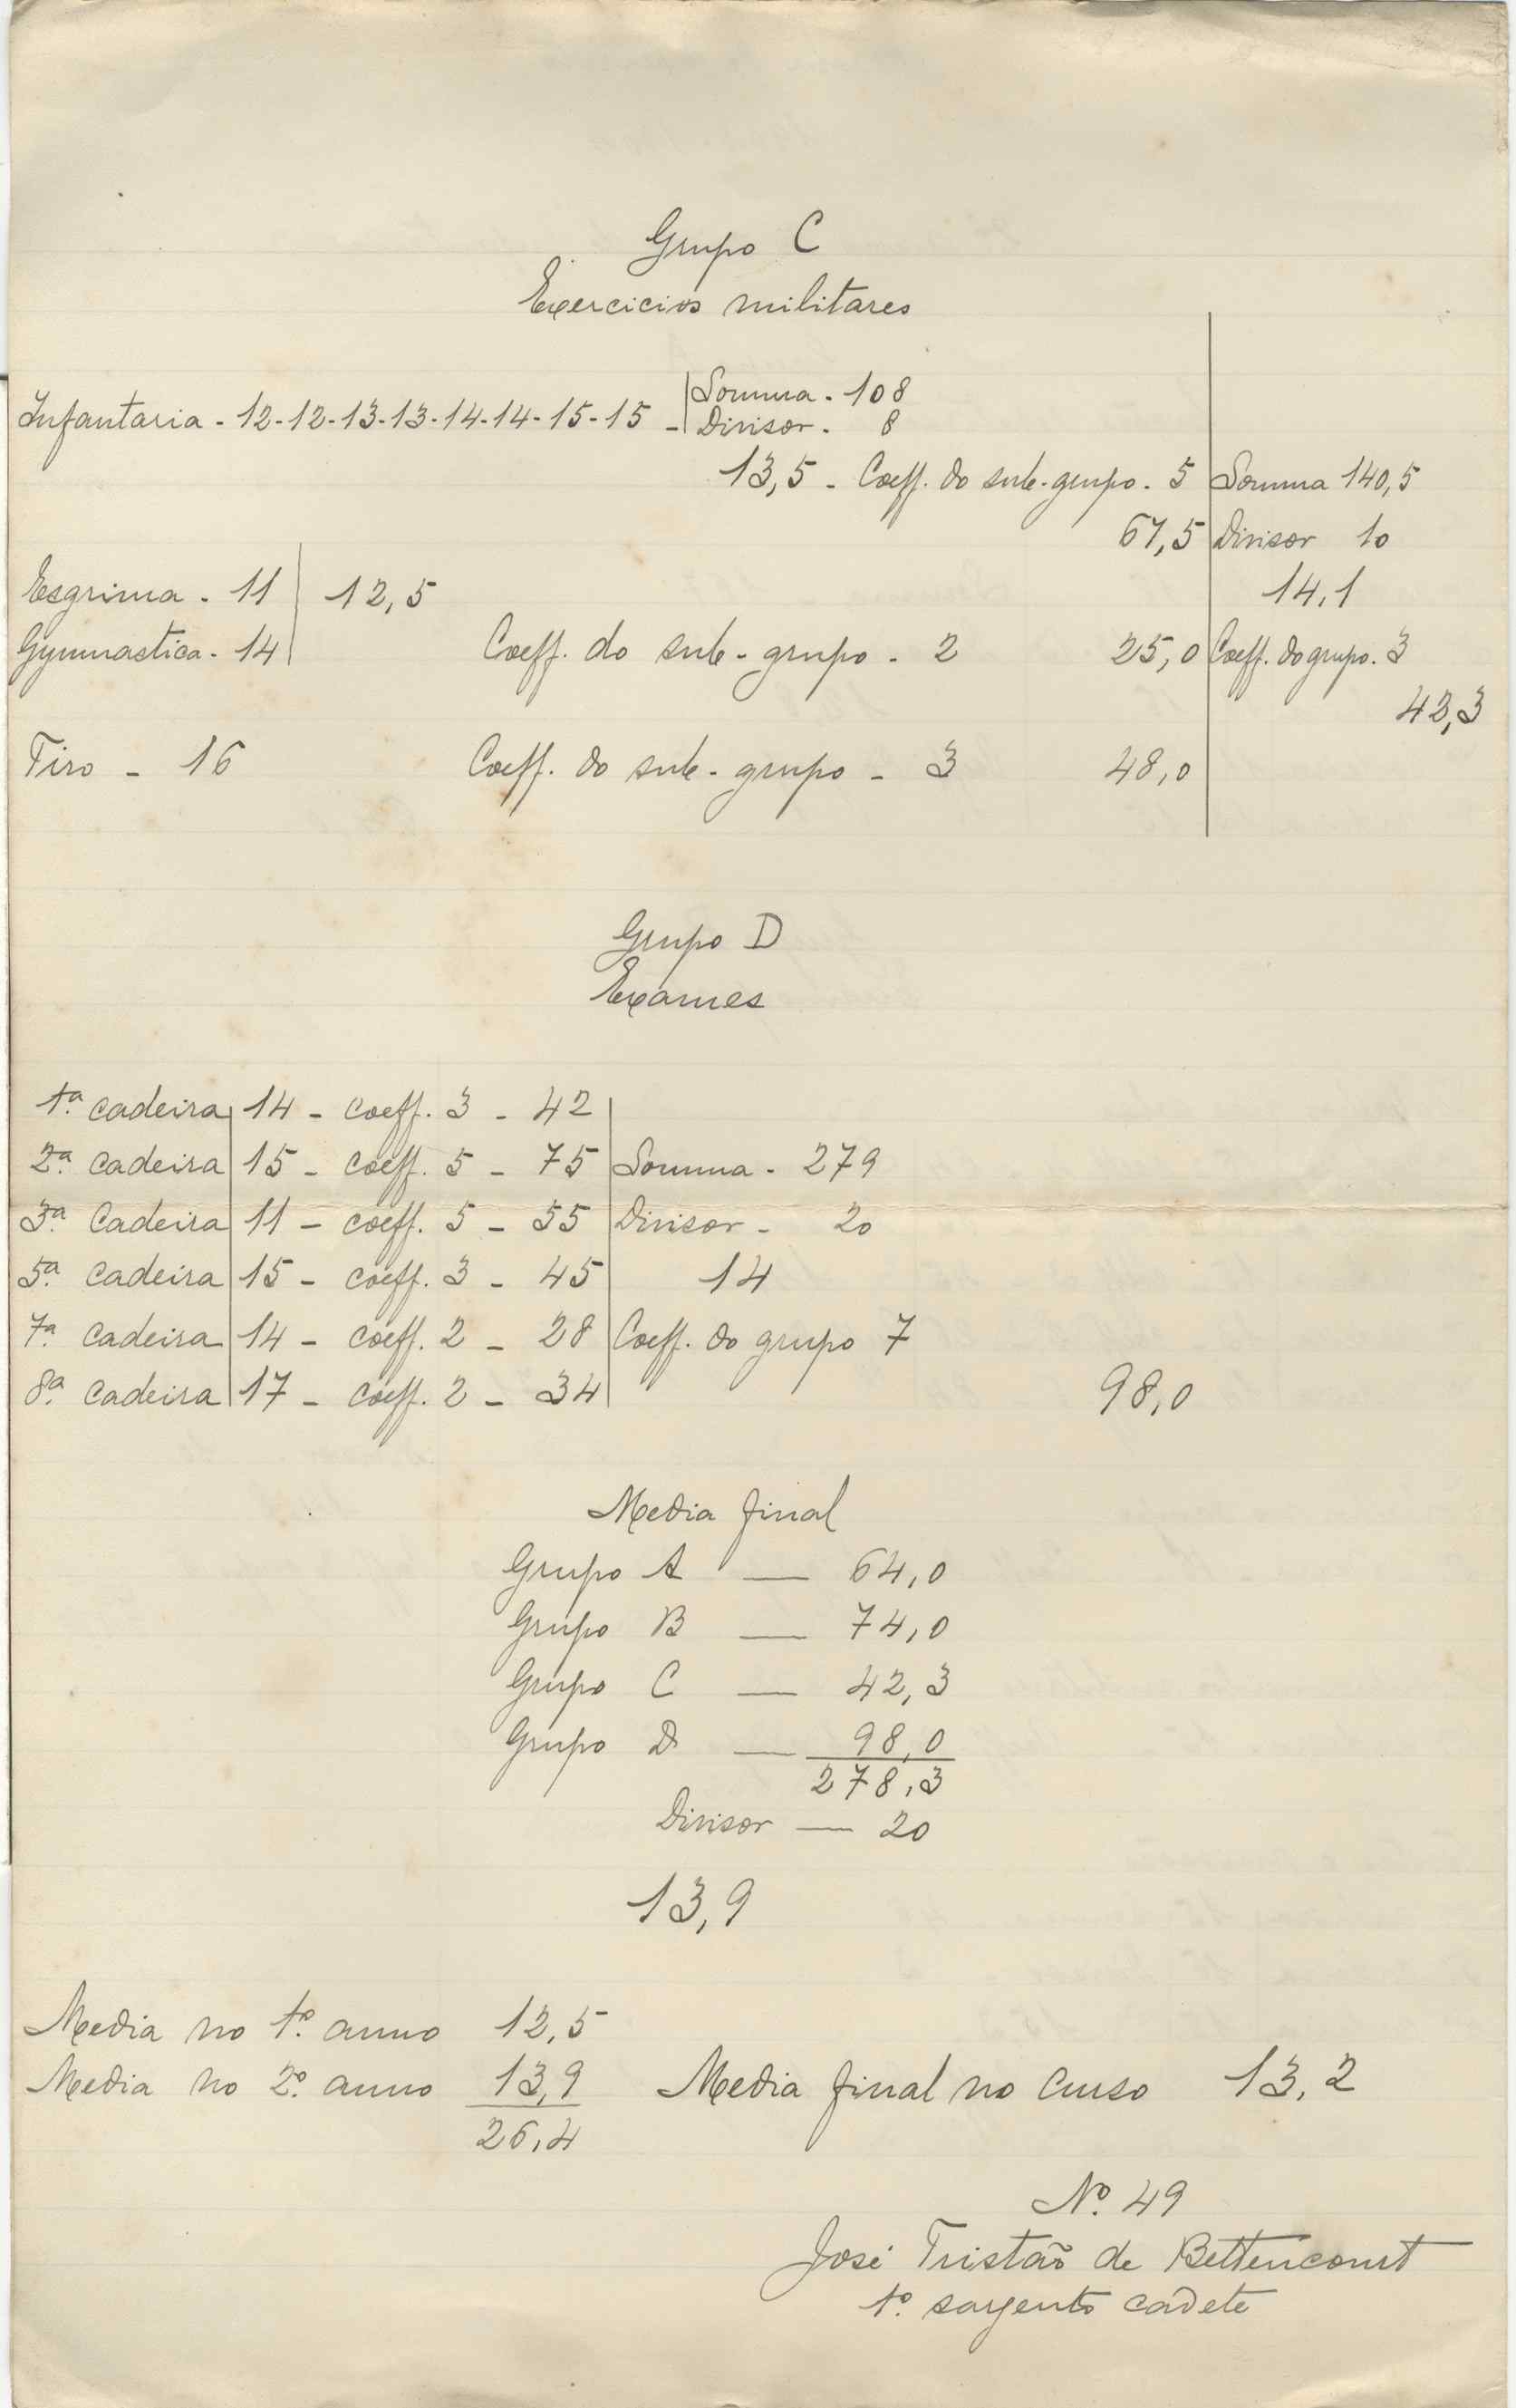 Grupo C
Exercicios militares
Infantaria - 12-12-13-13-14-14-15-15 - Somma - 108
Divisor - 8
13,5 - Coeff. do sub-grupo - 5 Somma 140,5
67,5 Divisor 10
Esgrima - 11 12,5 14,1
Gymnastica - 14 Coeff. do sub-grupo - 2 25,0 Coeff. do grupo. 3
42,3
Tiro - 16 Coeff. do sub-grupo - 3 48,0
Grupo D
Exames
1ª cadeira 14 - coeff. 3 - 42
2ª cadeira 15 - coeff. 5 - 75 Somma - 279
3ª cadeira 11 - coeff. 5 - 55 Divisor - 20
5ª cadeira 15 - coeff. 3 - 45 14
7ª cadeira 14 - coeff. 2 - 28 Coeff. do grupo 7
8ª cadeira 17 - coeff. 2 - 34 98,0
Media final
Grupo A — 64,0
Grupo B — 74,0
Grupo C — 42,3
Grupo D — 98,0
278,3
Divisor — 20
13,9
Media no 1º anno 12,5
Media no 2º anno 13,9 Media final no curso 13,2
26,4
Nº 49
José Tristão de Bettencourt
1º sargento cadete